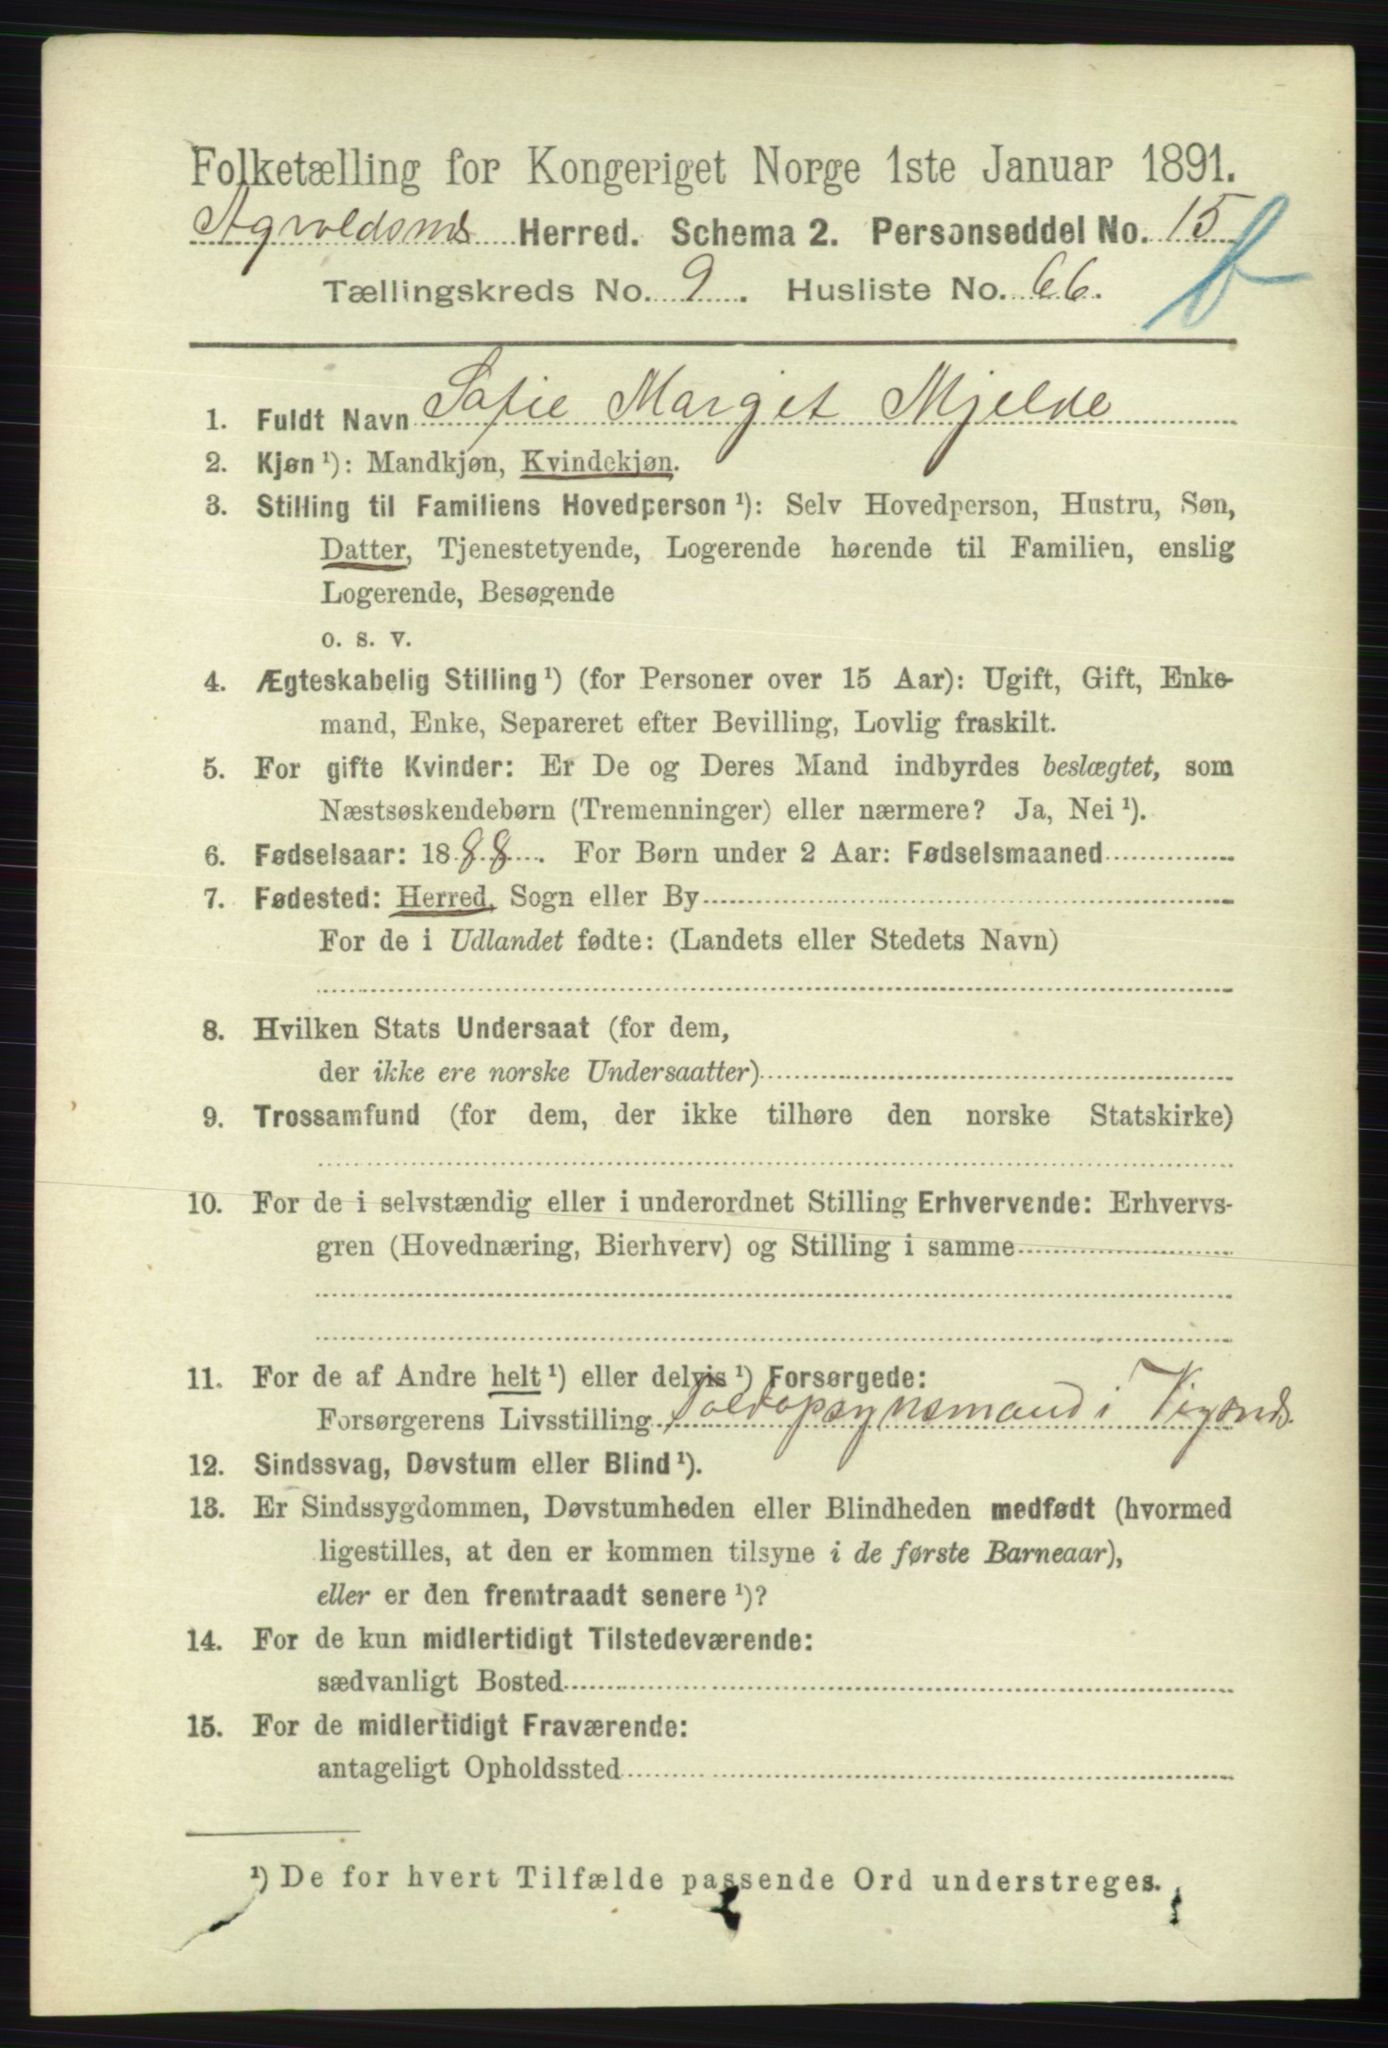 Folketælling for Kongeriget Norge 1ste Januar 1891.
Herred. Schema 2. Personseddel No. 15
Tællingskreds No. 9. Husliste No. 66.
1. Fuldt Navn Sofie Marget Mjelde
2. Kjøn ¹): Mandkjøn, Kvindekjøn.
3. Stilling til Familiens Hovedperson ¹): Selv Hovedperson, Hustru, Søn,
Datter, Tjenestetyende, Logerende hørende til Familien, enslig
Logerende, Besøgende
o. s. v.
4. Ægteskabelig Stilling ¹) (for Personer over 15 Aar): Ugift, Gift, Enke-
mand, Enke, Separeret efter Bevilling, Lovlig fraskilt.
5. For gifte Kvinder: Er De og Deres Mand indbyrdes beslægtet, som
Næstsøskendebørn (Tremenninger) eller nærmere? Ja, Nei ¹).
6. Fødselsaar: 1888. For Børn under 2 Aar: Fødselsmaaned
7. Fødested: Herred, Sogn eller By
For de i Udlandet fødte: (Landets eller Stedets Navn)
8. Hvilken Stats Undersaat (for dem,
der ikke ere norske Undersaatter)
9. Trossamfund (for dem, der ikke tilhøre den norske Statskirke)
10. For de i selvstændig eller i underordnet Stilling Erhvervende: Erhvervs-
gren (Hovednæring, Bierhverv) og Stilling i samme
11. For de af Andre helt ¹) eller delvis ¹) Forsørgede:
Forsørgerens Livsstilling Toldopsynsmand i
12. Sindssvag, Døvstum eller Blind ¹).
13. Er Sindssygdommen, Døvstumheden eller Blindheden medfødt (hvormed
ligestilles, at den er kommen tilsyne i de første Barneaar),
eller er den fremtraadt senere ¹)?
14. For de kun midlertidigt Tilstedeværende:
sædvanligt Bosted
15. For de midlertidigt Fraværende:
antageligt Opholdssted
¹) De for hvert Tilfælde passende Ord understreges.